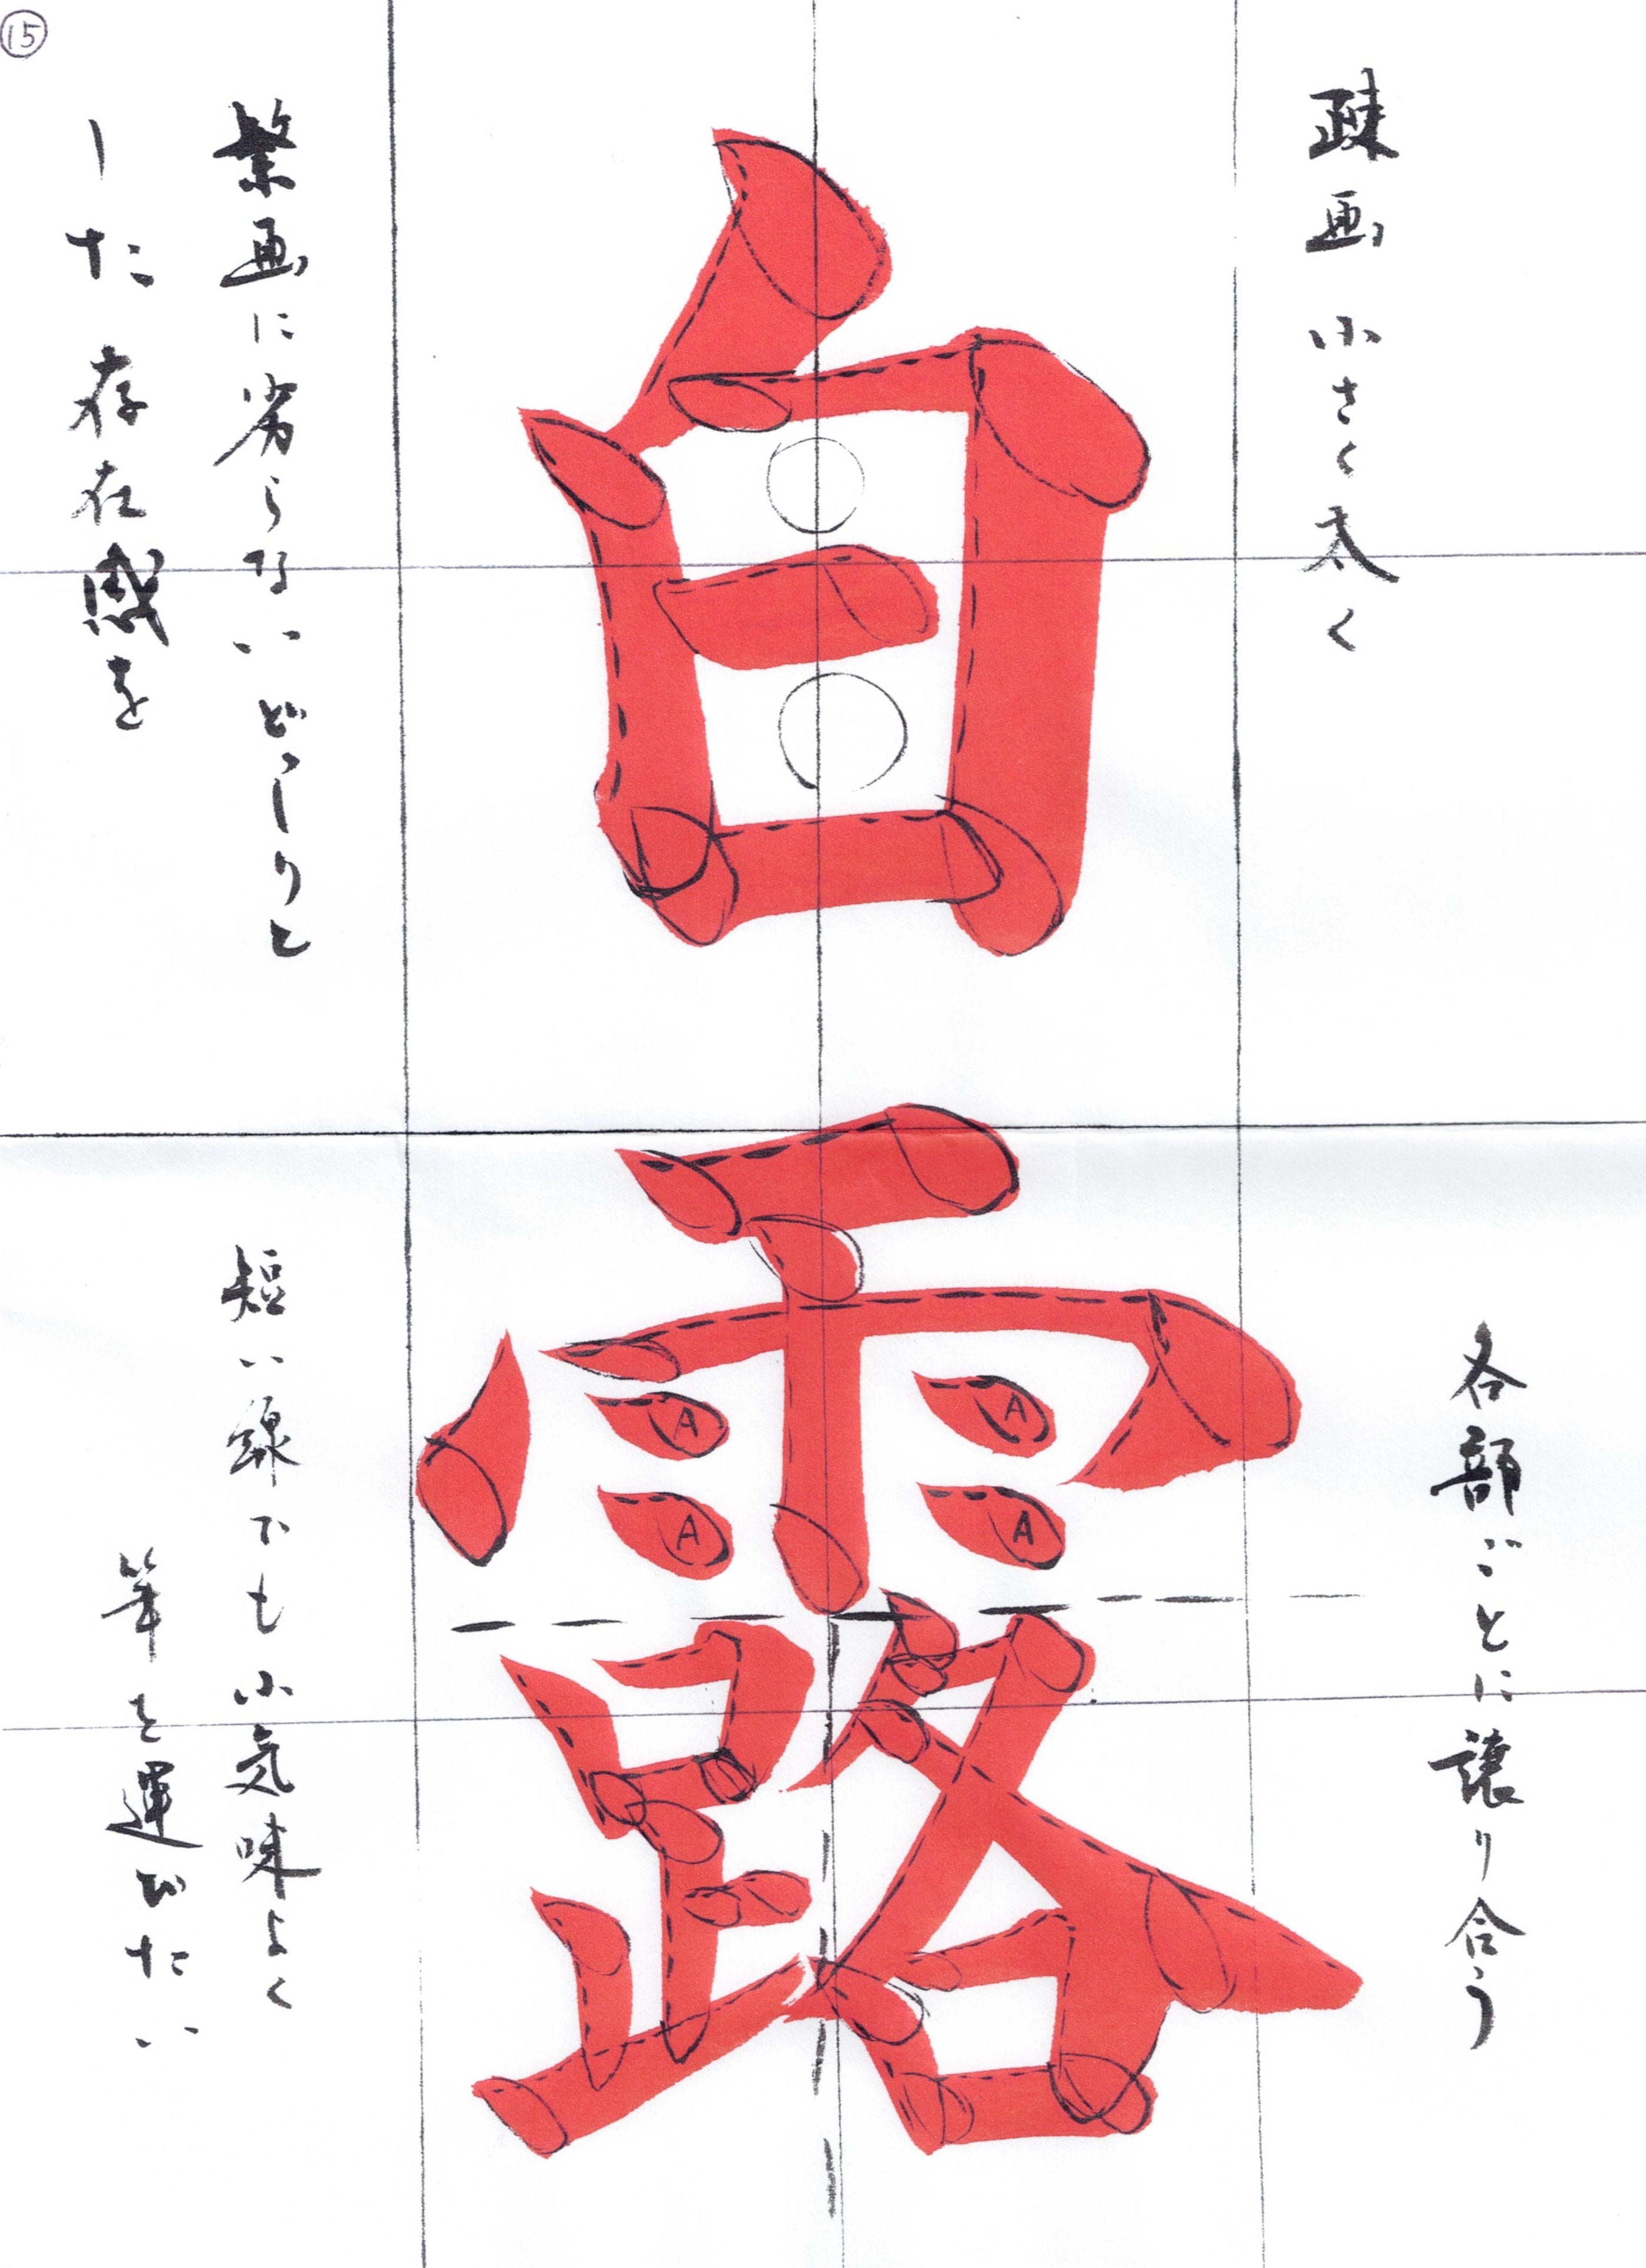 ⑮
疎画 小さく太く
白露
繁画に劣らないどっしりと
した存在感を
各部ごとに譲り合う
A A
A A
短い線でも小気味よく
筆を運びたい